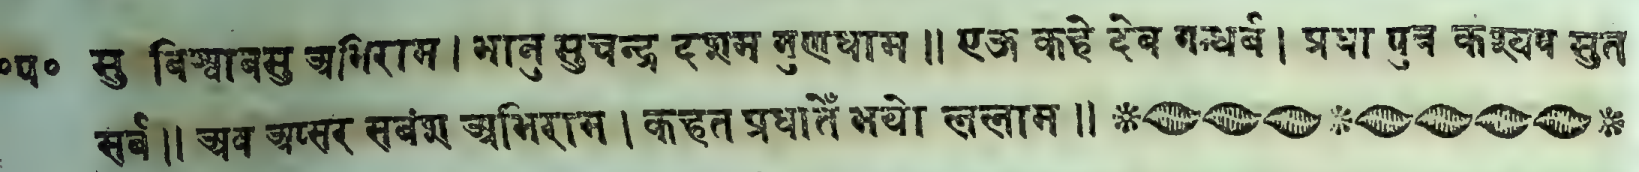 ०प० सु बिस्वाबसु अभिराम। भानु सुचन्द्र दशम गुणधाम॥ एज कहे देब गन्धर्ब। प्रधा पुत्र कश्यप सुत
सर्ब॥ अब अप्सर सबंश अभिराम। कहत प्रधातेँ भयो ललाम॥